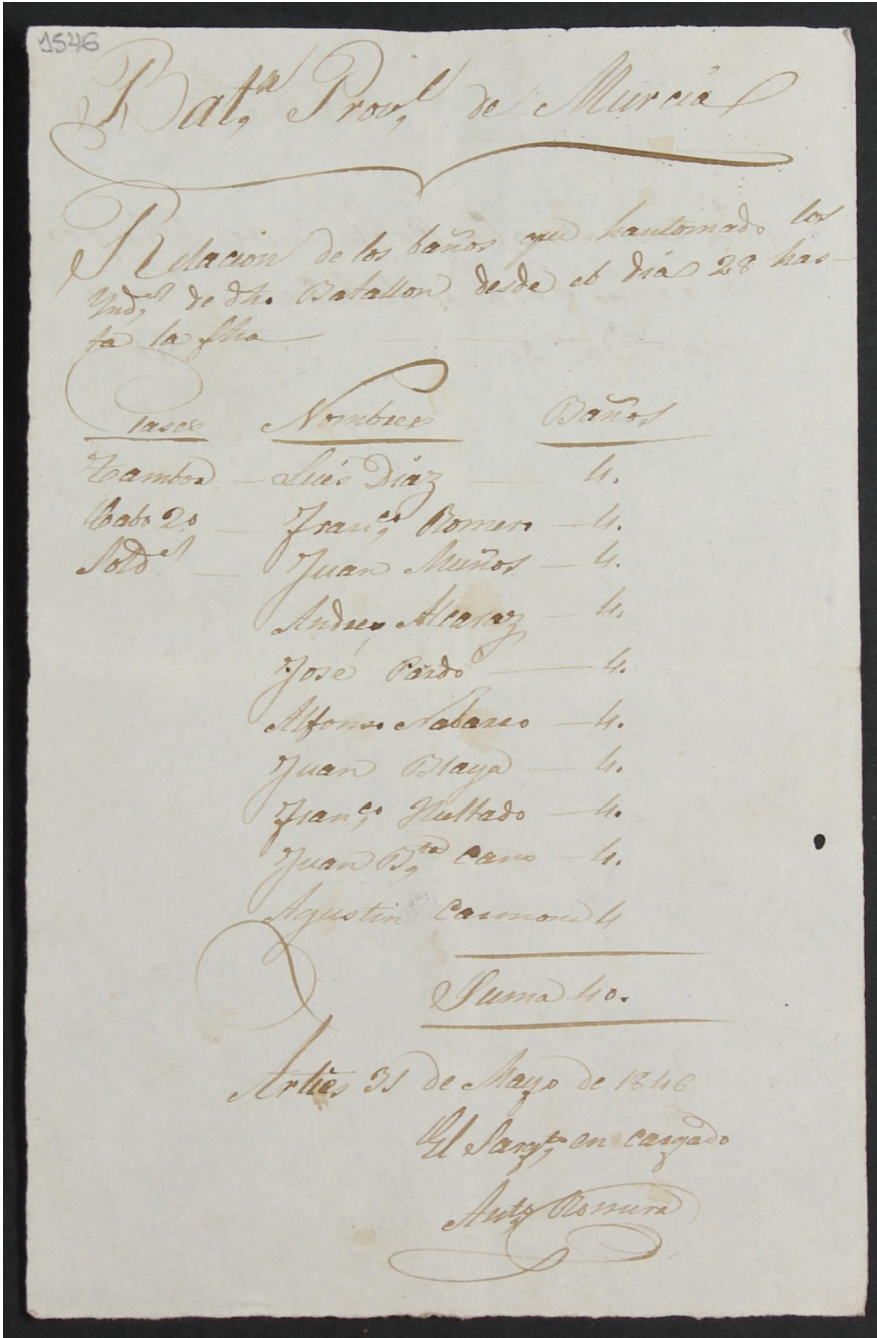 1546
Bat.ⁿ Prov.ˡ de Murcia
Relacion de los baños que hantomado los
Ynd.ˢ de dho. Batallon desde el dia 28 has-
ta la fha
Clases Nombres Baños
Tambor — Luis Diaz — 4.
Cabo 2o — Fran.ᶜᵒ Romero — 4.
Sold.ˢ — Juan Muños — 4.
Andres Alcaraz — 4.
José Pardo — 4.
Alfonso Nabarro — 4.
Juan Blaya — 4.
Fran.ᶜᵒ Hultado — 4.
Juan B.ᵗᵃ Cano — 4.
Agustin Carmona 4
Suma 40.
Arties 31 de Mayo de 1846
El Sarg.ᵗᵒ en cargado
Ant.ᵒ Romera